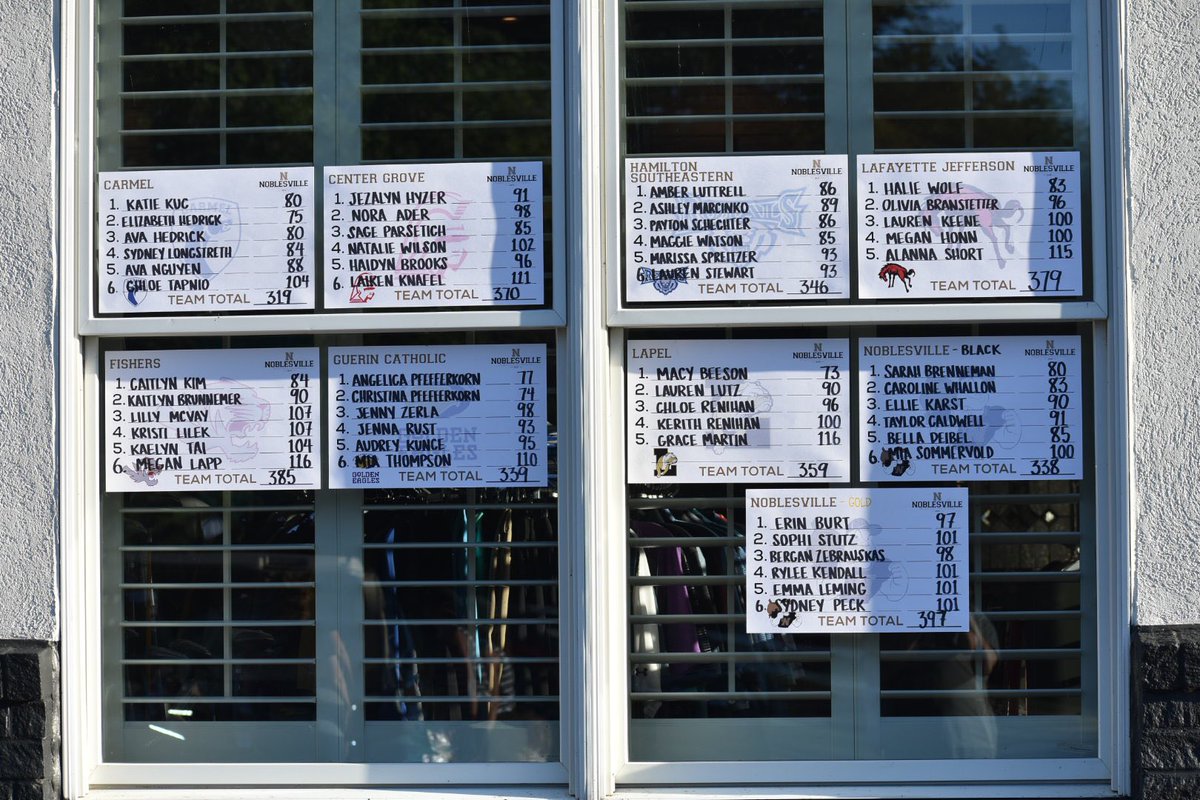 CARMEL
N
NOBLESVILLE
1. KATIE KUC 80
2. ELIZABETH HEDRICK 75
3. AVA HEDRICK 80
4. SYDNEY LONGSTRETH 84
5. AVA NGUYEN 88
6. CHLOE TAPNIO 104
TEAM TOTAL 319
CENTER GROVE
N
NOBLESVILLE
1. JEZALYN HYZER 91
2. NORA ADER 98
3. SAGE PARSETICH 85
4. NATALIE WILSON 102
5. HAIDYN BROOKS 96
6. LAIKEN KNAFEL 111
TEAM TOTAL 370
HAMILTON
SOUTHEASTERN
N
NOBLESVILLE
1. AMBER LUTTRELL 86
2. ASHLEY MARCINKO 89
3. PAYTON SCHECHTER 86
4. MAGGIE WATSON 85
5. MARISSA SPREITZER 93
6. LAUREN STEWART 93
TEAM TOTAL 346
LAFAYETTE JEFFERSON
N
NOBLESVILLE
1. HALIE WOLF 83
2. OLIVIA BRANSTETTER 96
3. LAUREN KEENE 100
4. MEGAN HONN 100
5. ALANNA SHORT 115
TEAM TOTAL 379
FISHERS
N
NOBLESVILLE
1. CAITLYN KIM 84
2. KAITLYN BRUNNEMER 90
3. LILLY MCVAY 107
4. KRISTI LILEK 107
5. KAELYN TAI 104
6. MEGAN LAPP 116
TEAM TOTAL 385
GUERIN CATHOLIC
N
NOBLESVILLE
1. ANGELICA PFEFFERKORN 77
2. CHRISTINA PFEFFERKORN 74
3. JENNY ZERLA 98
4. JENNA RUST 93
5. AUDREY KUNCE 95
6. MIA THOMPSON 110
GOLDEN
EAGLES
TEAM TOTAL 339
LAPEL
N
NOBLESVILLE
1. MACY BEESON 73
2. LAUREN LUTZ 90
3. CHLOE RENIHAN 96
4. KERITH RENIHAN 100
5. GRACE MARTIN 116
TEAM TOTAL 359
NOBLESVILLE - BLACK
N
NOBLESVILLE
1. SARAH BRENNEMAN 80
2. CAROLINE WHALLON 83
3. ELLIE KARST 90
4. TAYLOR CALDWELL 91
5. BELLA DEIBEL 85
6. MIA SOMMERVOLD 100
TEAM TOTAL 338
NOBLESVILLE - GOLD
N
NOBLESVILLE
1. ERIN BURT 97
2. SOPHI STUTZ 101
3. BERGAN ZEBRAUSKAS 98
4. RYLEE KENDALL 101
5. EMMA LEMING 101
6. SYDNEY PECK 101
TEAM TOTAL 397